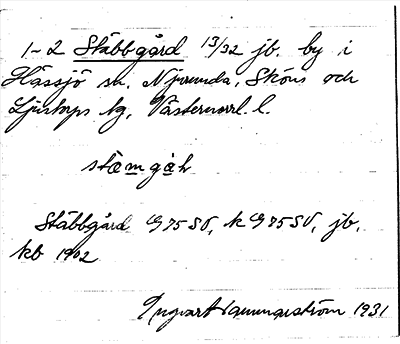 1-2 Stäbbgård 13/32 jb. by i
Hässjö sn. Njurunda, Sköns och
Ljustorps tg, Västernorrl. l.
stämgåh
Stäbbgård G 75 SV, k G 75 SV, jb,
kb 1902
Ingvar Hammarström 1931